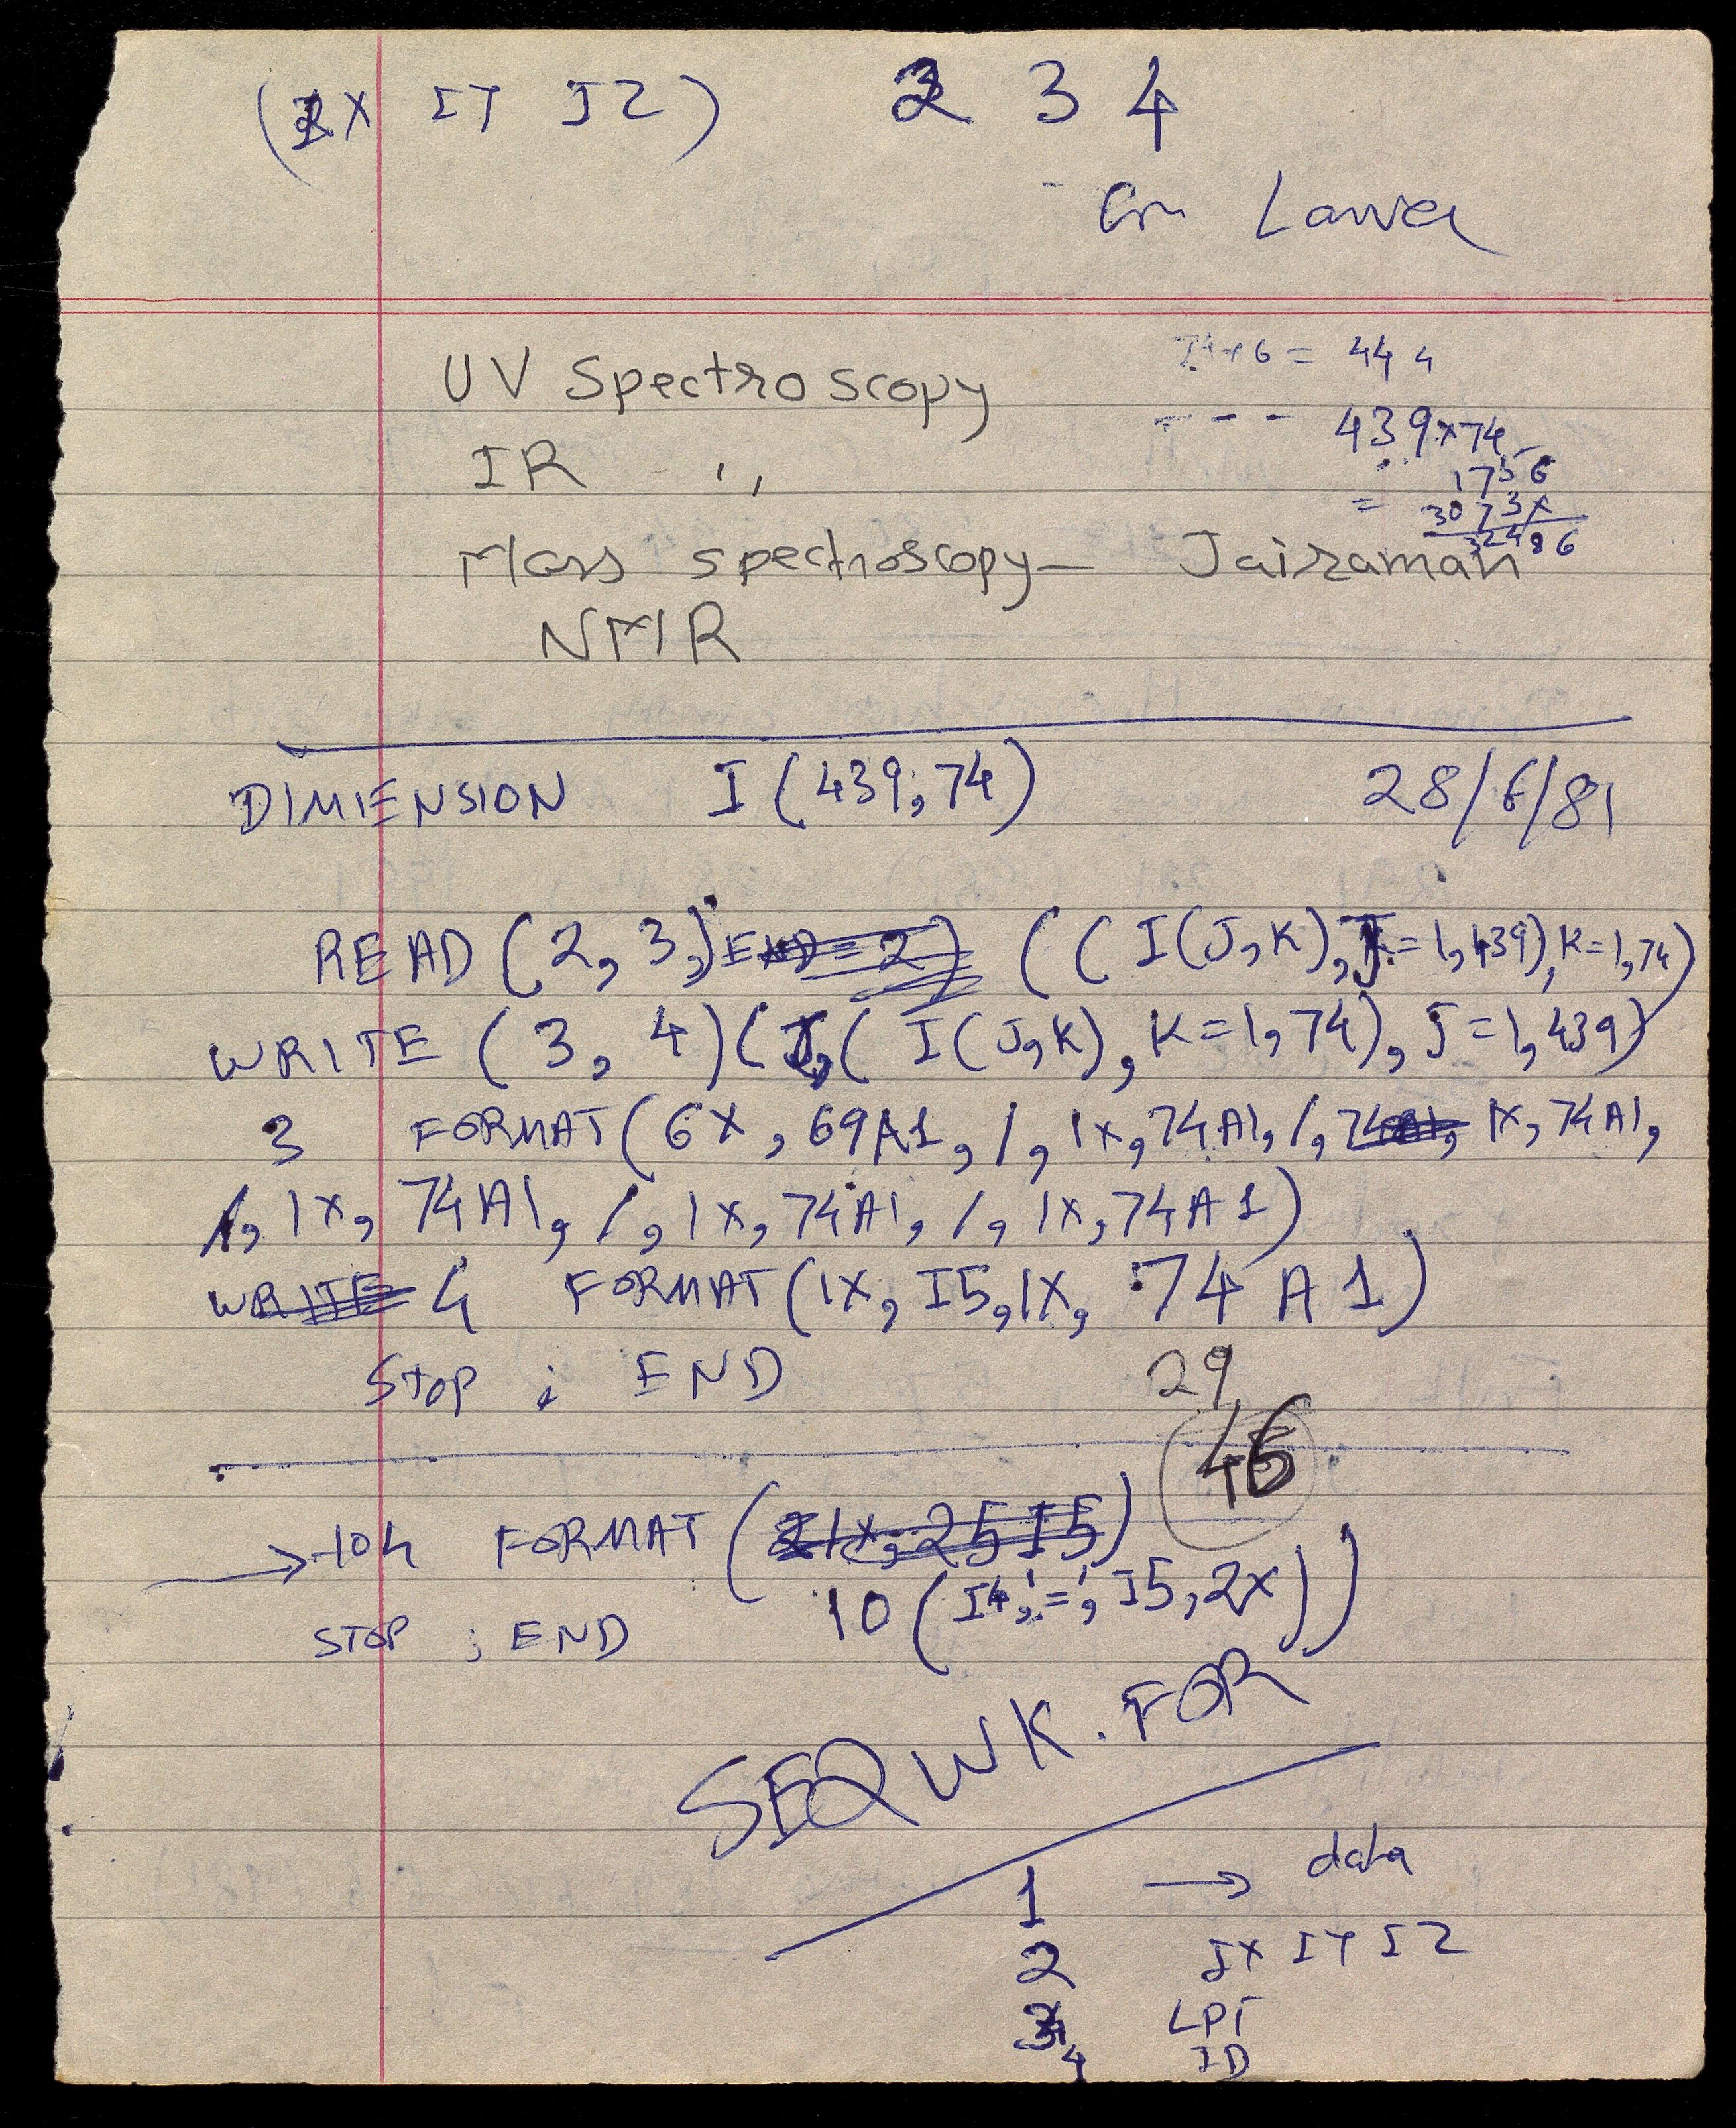 (IX IY IZ) 2 3 4
UV Spectroscopy
74x6 = 444
IR ,,
439x74
1756
= 3073x
32486
Mass spectroscopy - Jairaman
NMR
DIMENSION I(439,74) 28/6/81
READ (2,3,) END=2) ((I(J,K),J=1,439),K=1,74)
WRITE (3, 4)(J,(I(J,K),K=1,74),J=1,439)
3 FORMAT(6X,69A1,/,1X,74A1,/,74A1, 1X,74A1,
/,1X,74A1,/,1X,74A1,/,1X,74A1)
WRITE 4 FORMAT(1X,I5,1X, 74 A1)
STOP ; END 29
46
→ 104 FORMAT (21X,25I5)
10(I4,'=',I5,2X))
STOP ; END
SEQWK.FOR
1 → data
2 IX IY IZ
3 LPT
4 ID